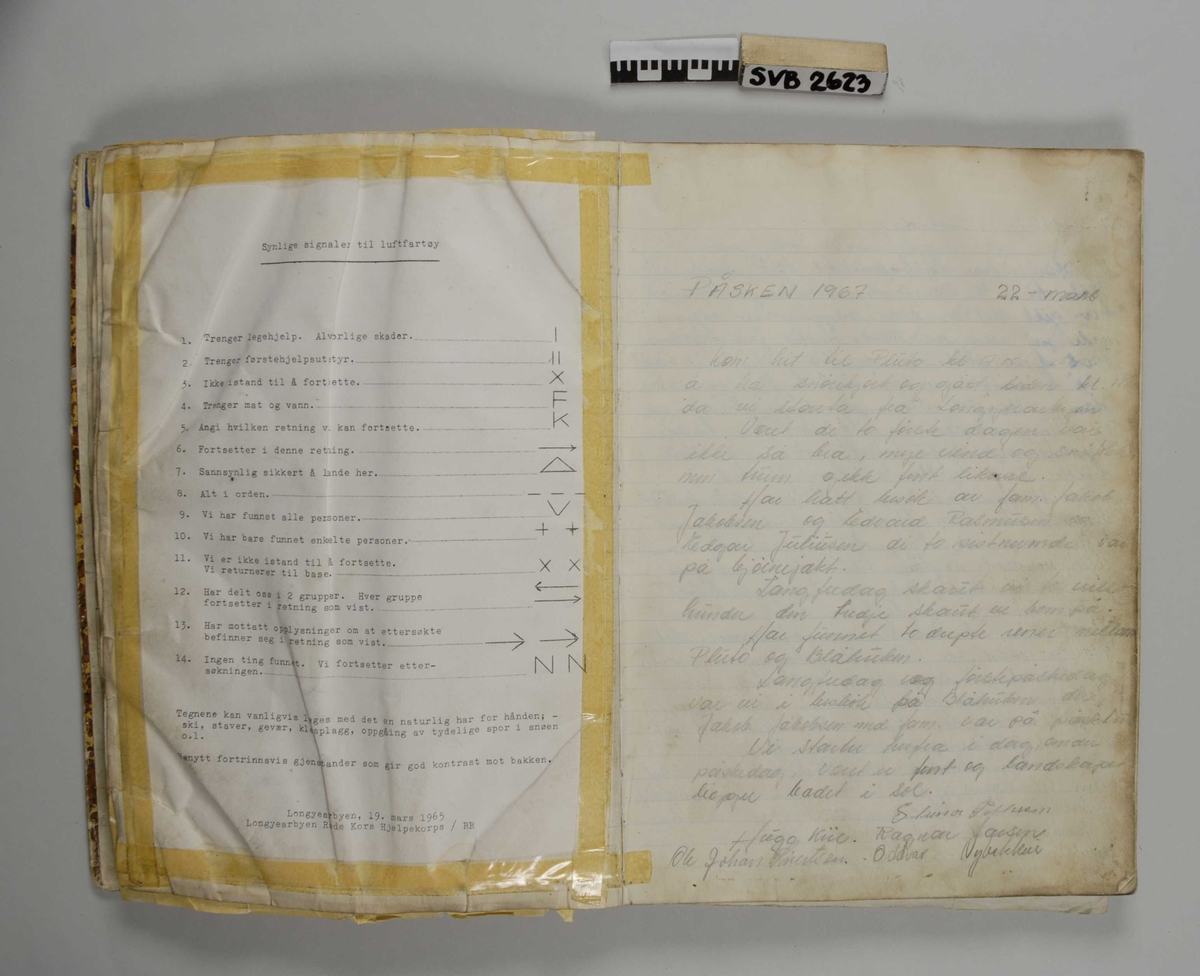 SVB 2623
Synlige signaler til luftfartøy
1. Trenger legehjelp. Alvorlige skader. I
2. Trenger førstehjelpsutstyr. II
3. Ikke istand til å fortsette. X
4. Trenger mat og vann. F
5. Angi hvilken retning vi kan fortsette. K
6. Fortsetter i denne retning. →
7. Sannsynlig sikkert å lande her. △
8. Alt i orden. - - -
9. Vi har funnet alle personer. V
10. Vi har bare funnet enkelte personer. + +
11. Vi er ikke istand til å fortsette.
Vi returnerer til base. X X
12. Har delt oss i 2 grupper. Hver gruppe ←
fortsetter i retning som vist. →
13. Har mottatt opplysninger om at ettersøkte
befinner seg i retning som vist. → →
14. Ingen ting funnet. Vi fortsetter etter-
søkningen. N N
Tegnene kan vanligvis lages med det en naturlig har for hånden; -
ski, staver, gevær, klesplagg, oppgåing av tydelige spor i snøen
o.l.
Benytt fortrinnsvis gjenstander som gir god kontrast mot bakken.
Longyearbyen, 19. mars 1965
Longyearbyen Røde Kors Hjelpekorps / RR
PÅSKEN 1967 22 - mars
kom hit til Pluto kl
og
da vi starta frå Longyearbyen
Været de to første dagen var
ikke så bra, mye vind og
men turen gikk fint likevel.
Har hatt besøk av fam. Jakob
Jakobsen og Edvard Rasmussen og
Edgar Juliusen de to sistnevnte var
på bjørnejakt.
Langfredag skaut
hunder den tredje skaut vi bom på.
Har funnet to drepte reiner mellom
Pluto og Blåhuken.
Langfredag og første påskedag
var vi i besøk på Blåhuken der
Jakob Jakobsen med fam. var på påsketur
Vi starter herfra i dag, annen
påskedag, været er fint og landskapet
ligger badet i sol.
Hugo Ragnar
Ole Johan Oddvar